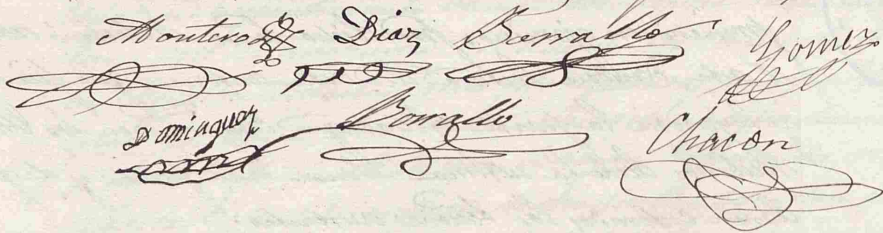 Montero Diaz Borrallo Gomez
Dominguez Borrallo Chacon